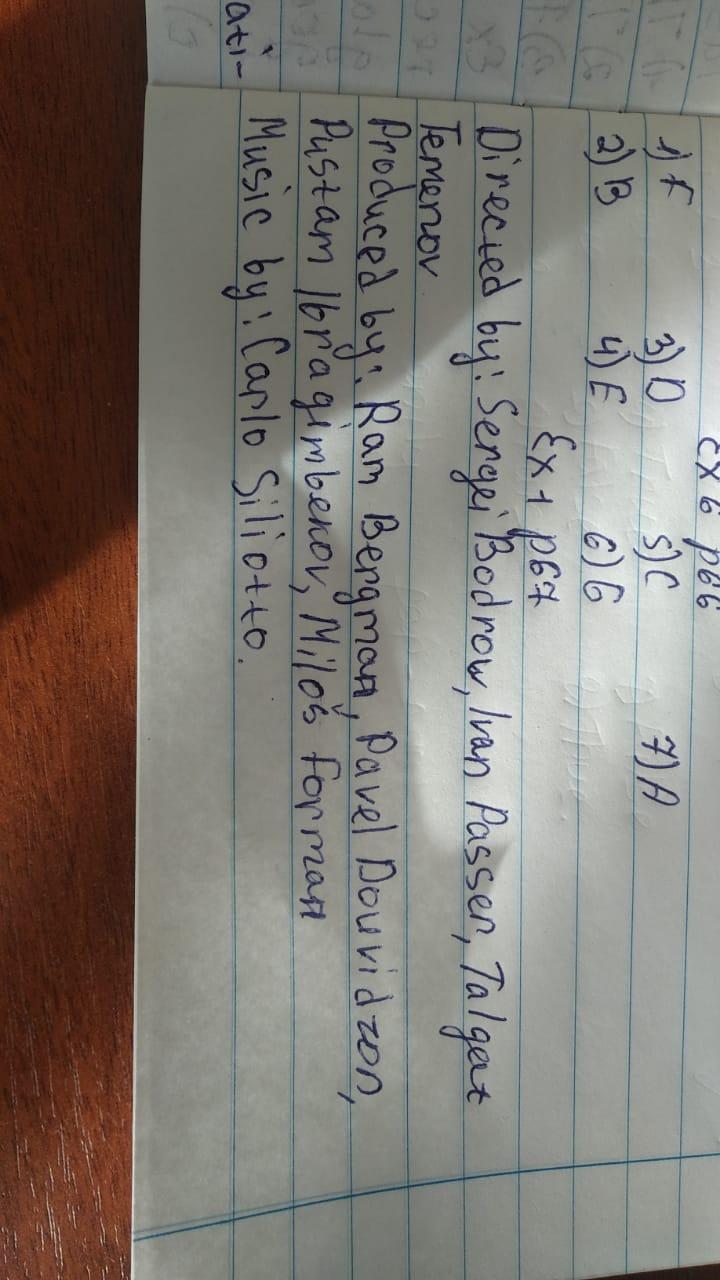 Ex 6 p66
1) F 3) D 5) C 7) A
2) B 4) E 6) G
Ex 1 p67
Directed by: Sergei Bodrow, Ivan Passer, Talgat
Temenov
Produced by: Ram Bergman, Pavel Douvidzon,
Rustam Ibragimbekov, Miloš Forman
Music by: Carlo Siliotto.
ati-